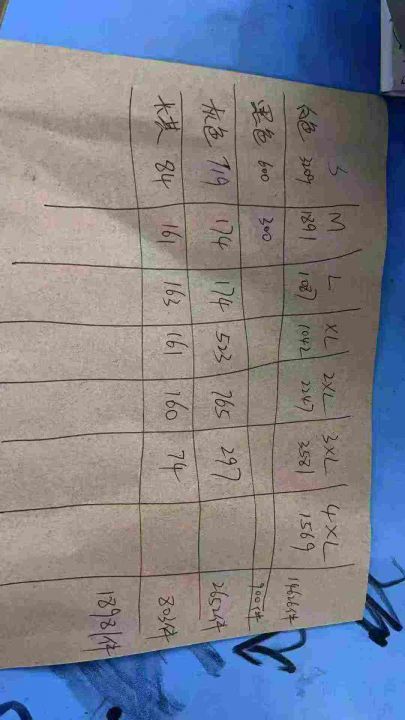 S M L XL 2XL 3XL 4XL
白色 3209 1891 1087 1042 2247 3581 1569 14626件
黑色 600 300 900件
灰色 719 174 174 523 765 297 2652件
卡其 84 161 163 161 160 74 803件
18981件